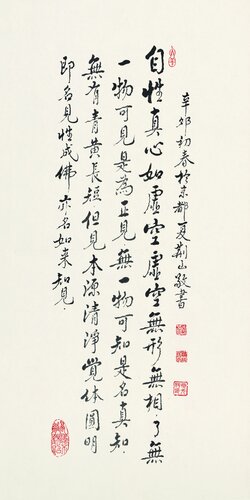 自性真心如虛空虛空無形無相了無
一物可見是為正見無一物可知是名真知
無有青黃長短但見本源清淨覺體圓明
即名見性成佛亦名如來知見
辛卯初春於京都夏荊山敬書